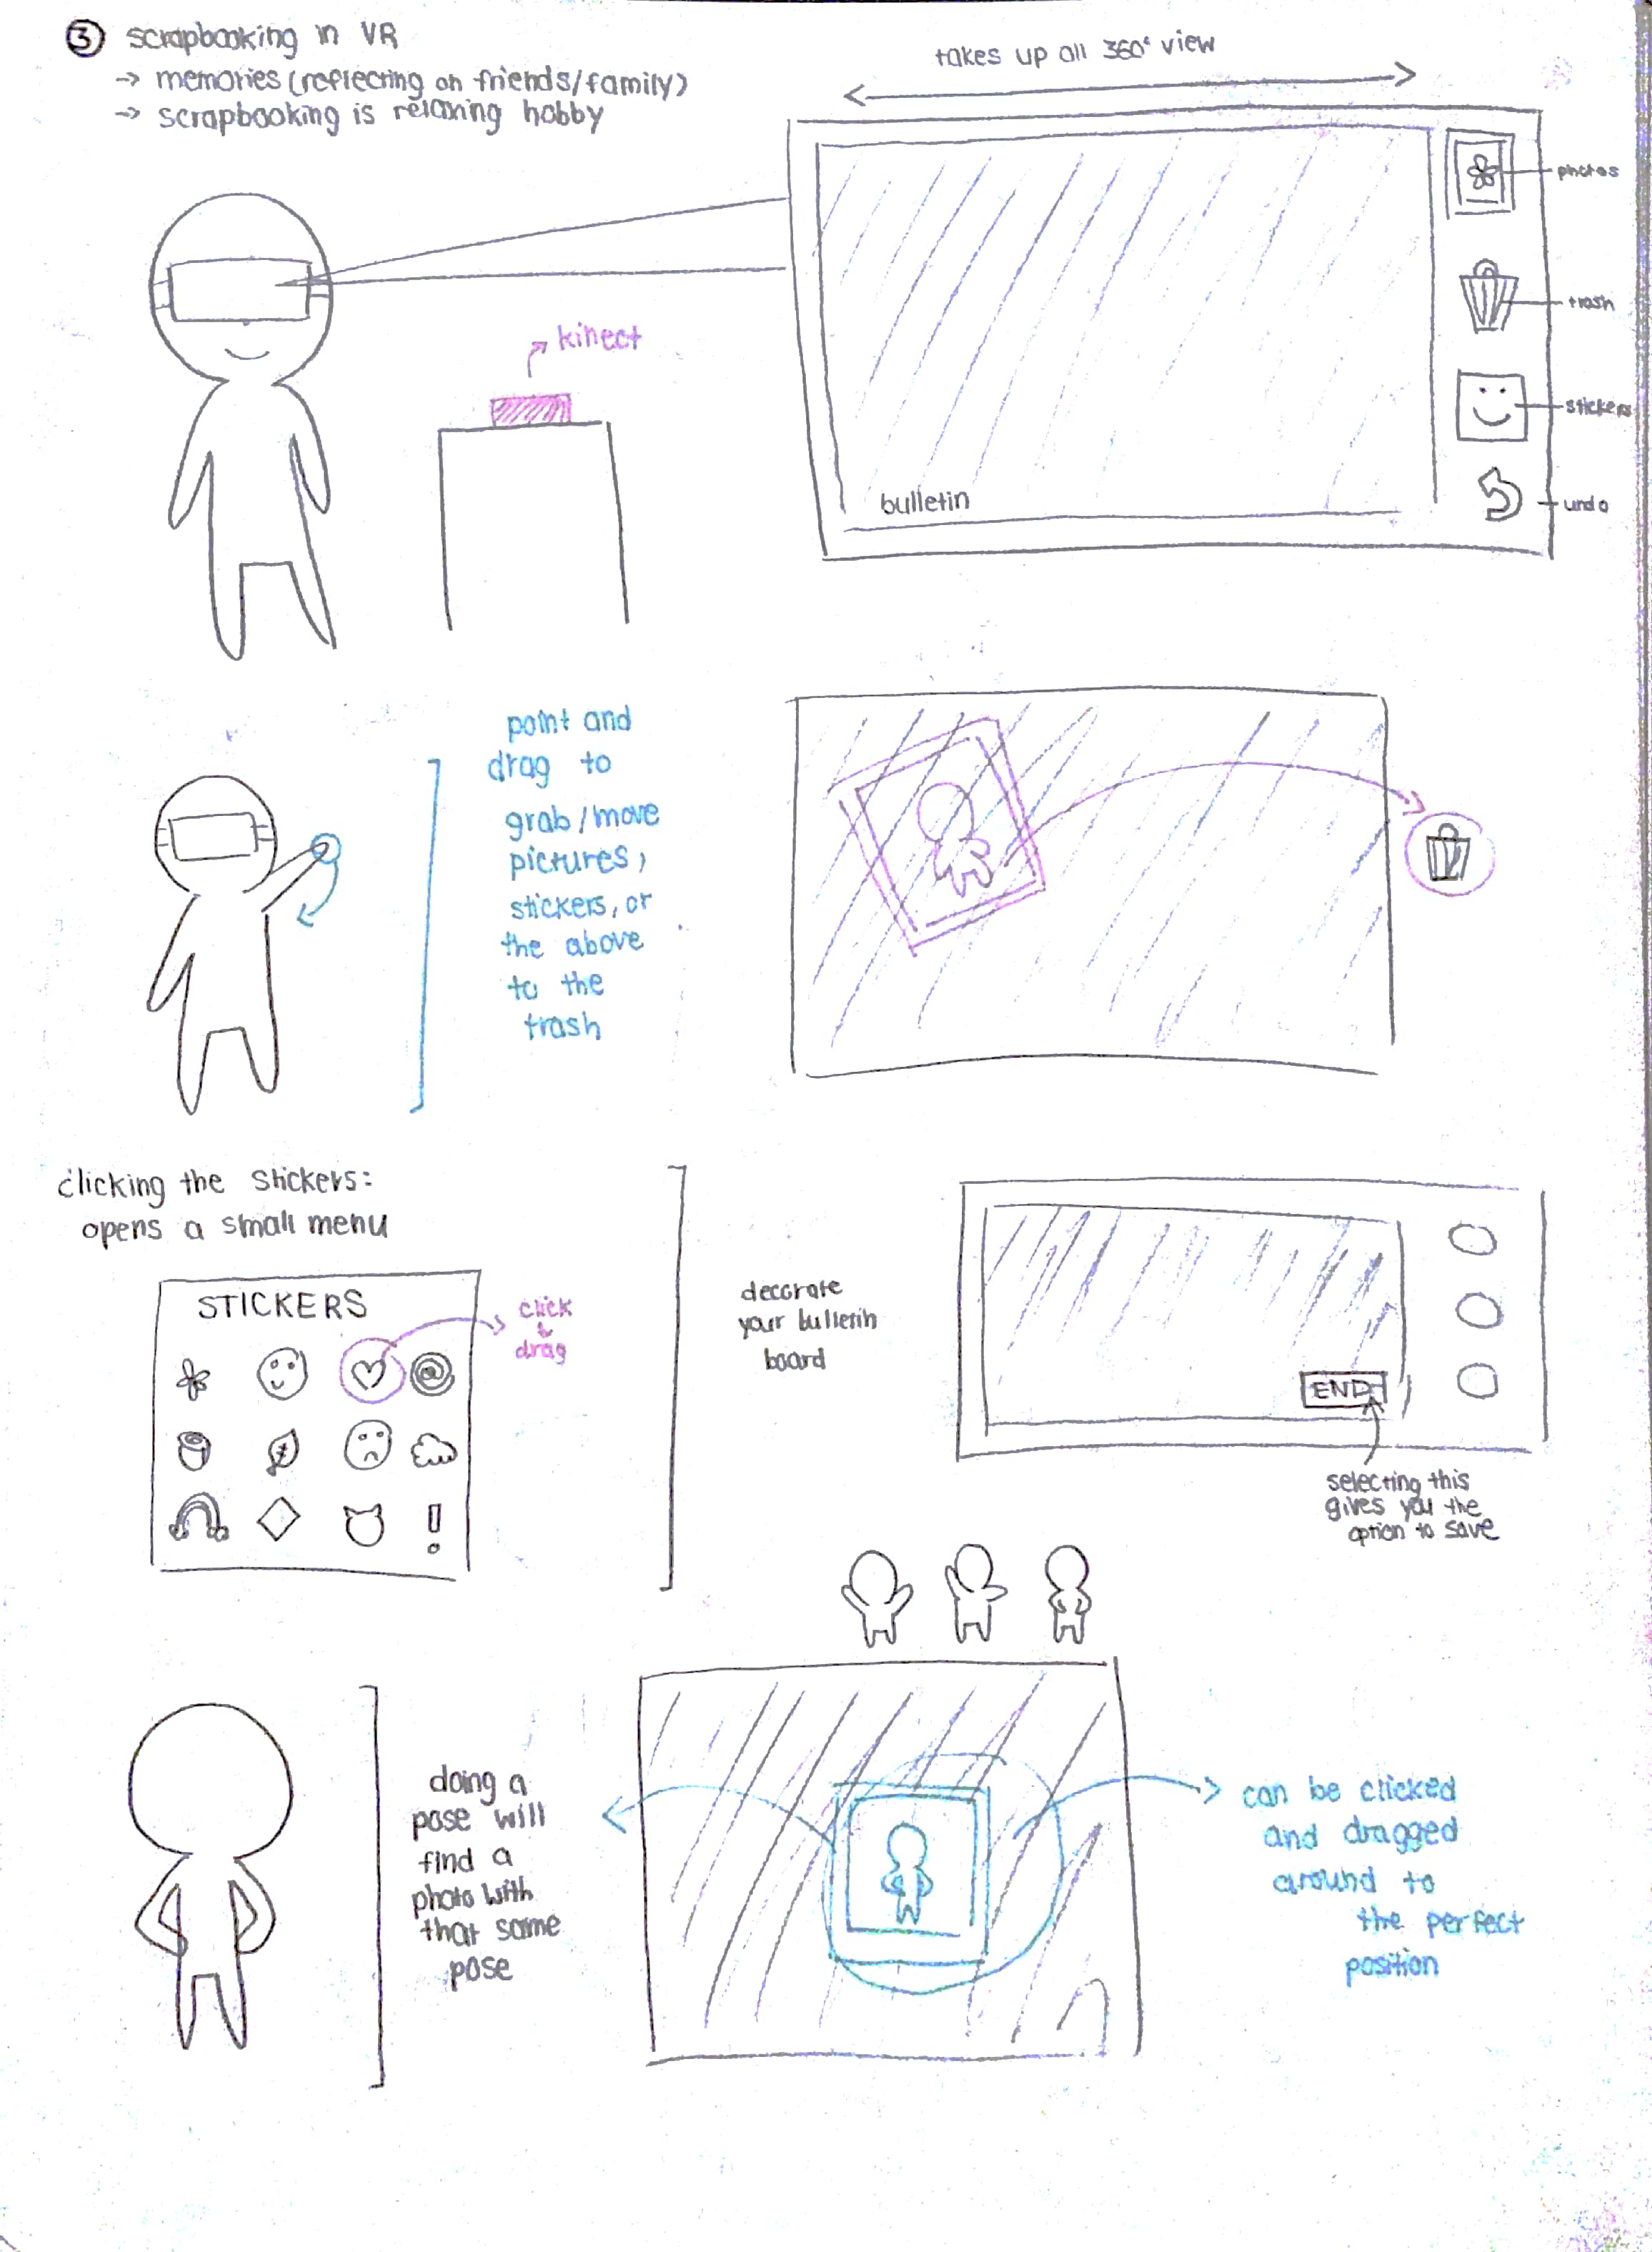 ③ scrapbooking in VR
→ memories (reflecting on friends/family)
→ scrapbooking is relaxing hobby
takes up all 360° view
photos
trash
stickers
undo
bulletin
kinect
point and
drag to
grab/move
pictures,
stickers, or
the above
to the
trash
clicking the stickers:
opens a small menu
STICKERS
click
&
drag
!
decorate
your bulletin
board
END
selecting this
gives you the
option to save
doing a
pose will
find a
photo with
that same
pose
can be clicked
and dragged
around to
the perfect
position